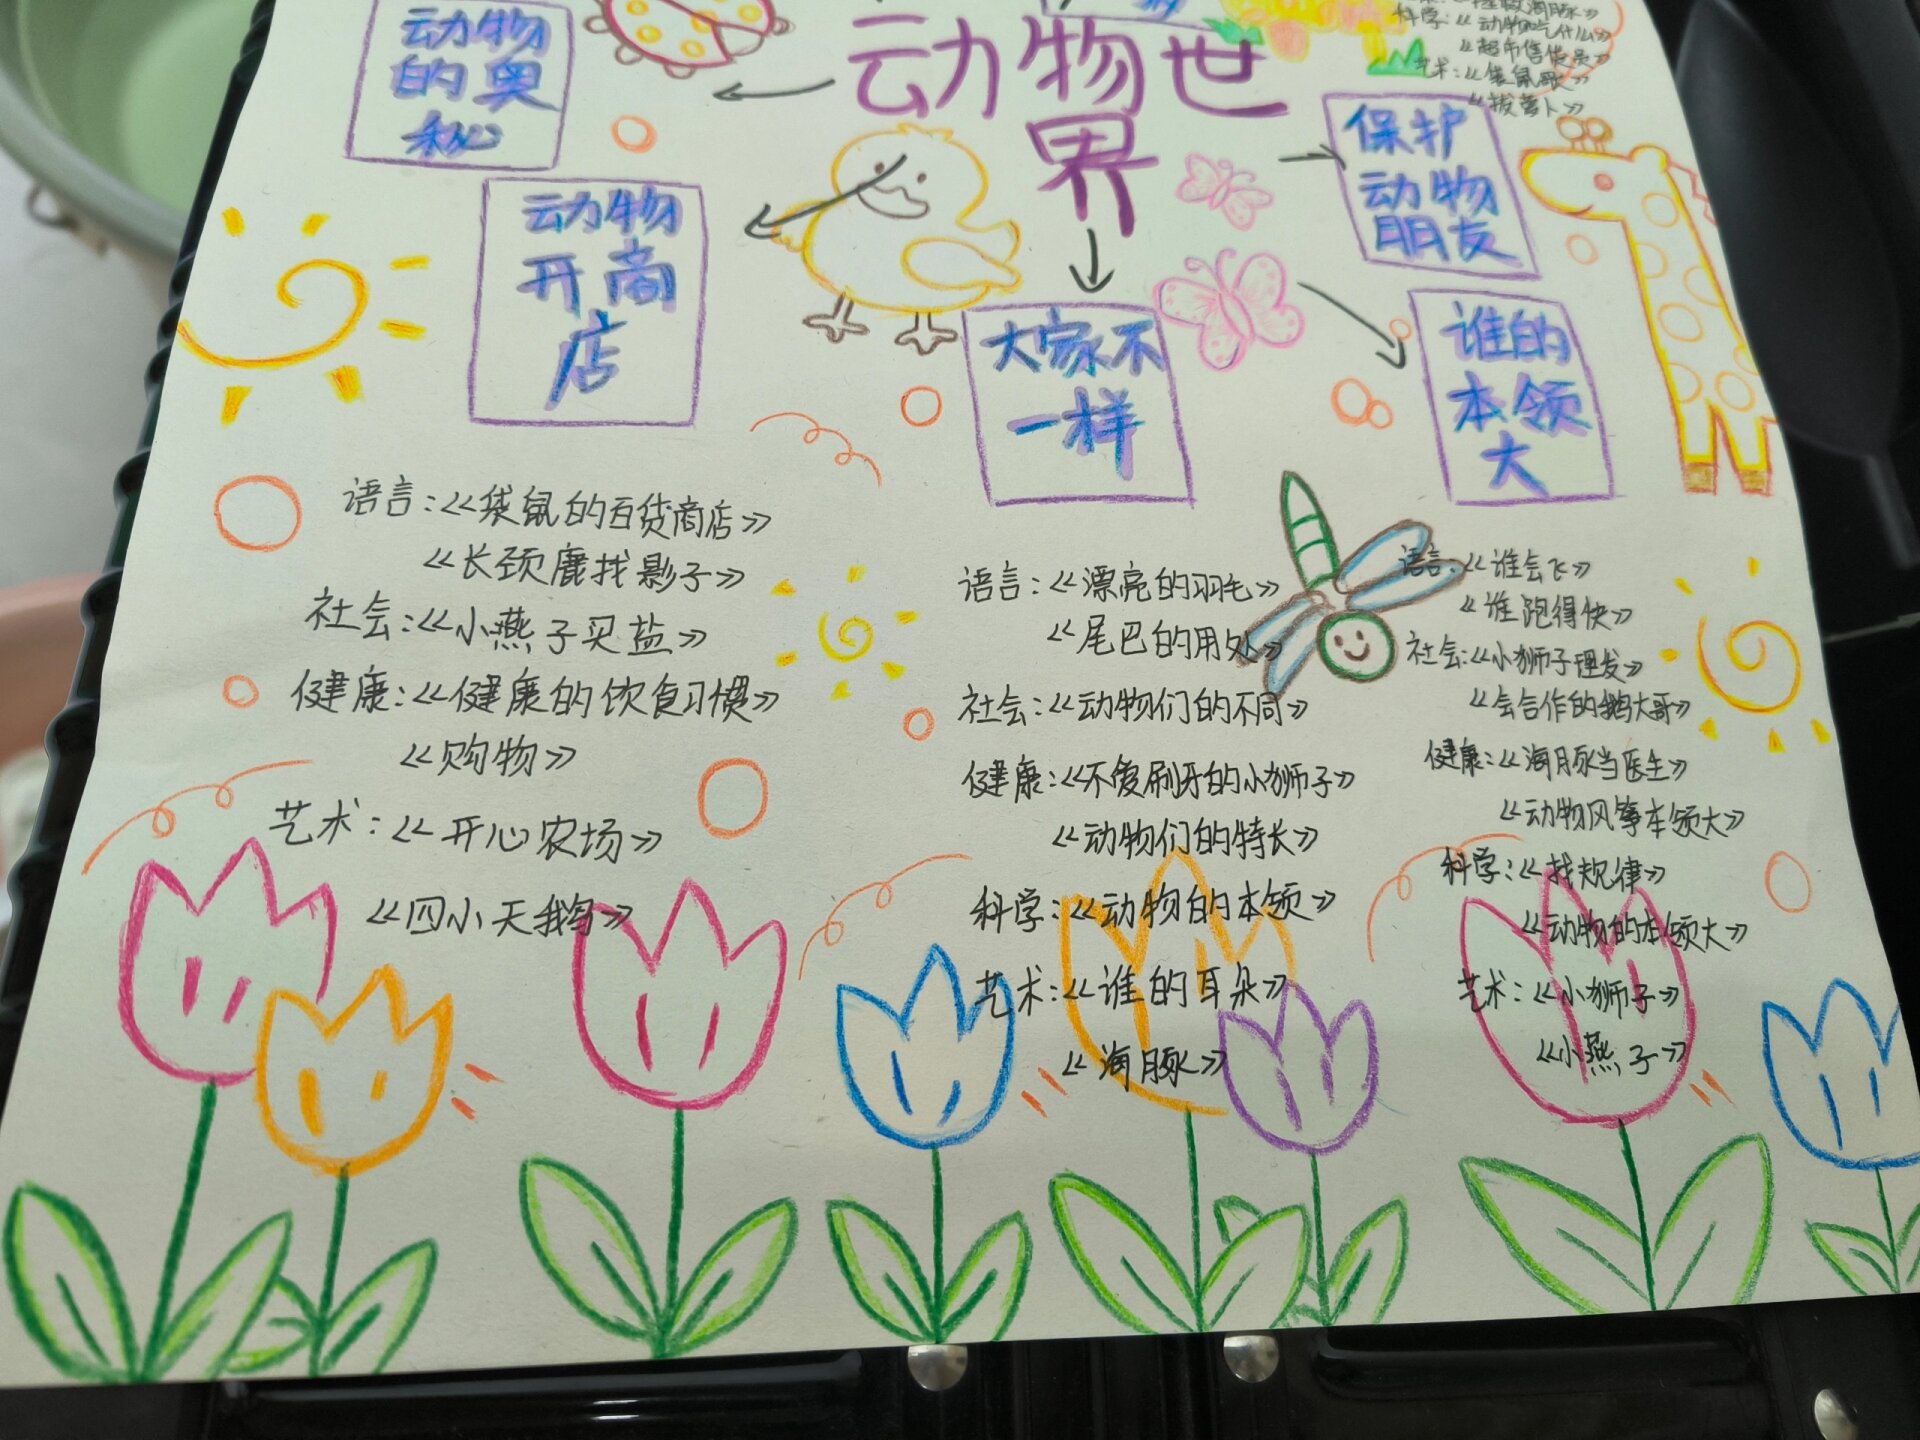 动物世
界
动物
的奥
秘
动物
开商
店
大家不
一样
保护
动物
朋友
谁的
本领
大
科学:《动物吃什么》
《超市售货员》
艺术:《袋鼠歌》
《拔萝卜》
语言:《袋鼠的百货商店》
《长颈鹿找影子》
社会:《小燕子买盐》
健康:《健康的饮食习惯》
《购物》
艺术:《开心农场》
《四小天鹅》
语言:《漂亮的羽毛》
《尾巴的用处》
社会:《动物们的不同》
健康:《不爱刷牙的小狮子》
《动物们的特长》
科学:《动物的本领》
艺术:《谁的耳朵》
《海豚》
语言:《谁会飞》
《谁跑得快》
社会:《小狮子理发》
《会合作的鹅大哥》
健康:《海豚当医生》
《动物风筝本领大》
科学:《找规律》
《动物的本领大》
艺术:《小狮子》
《小燕子》